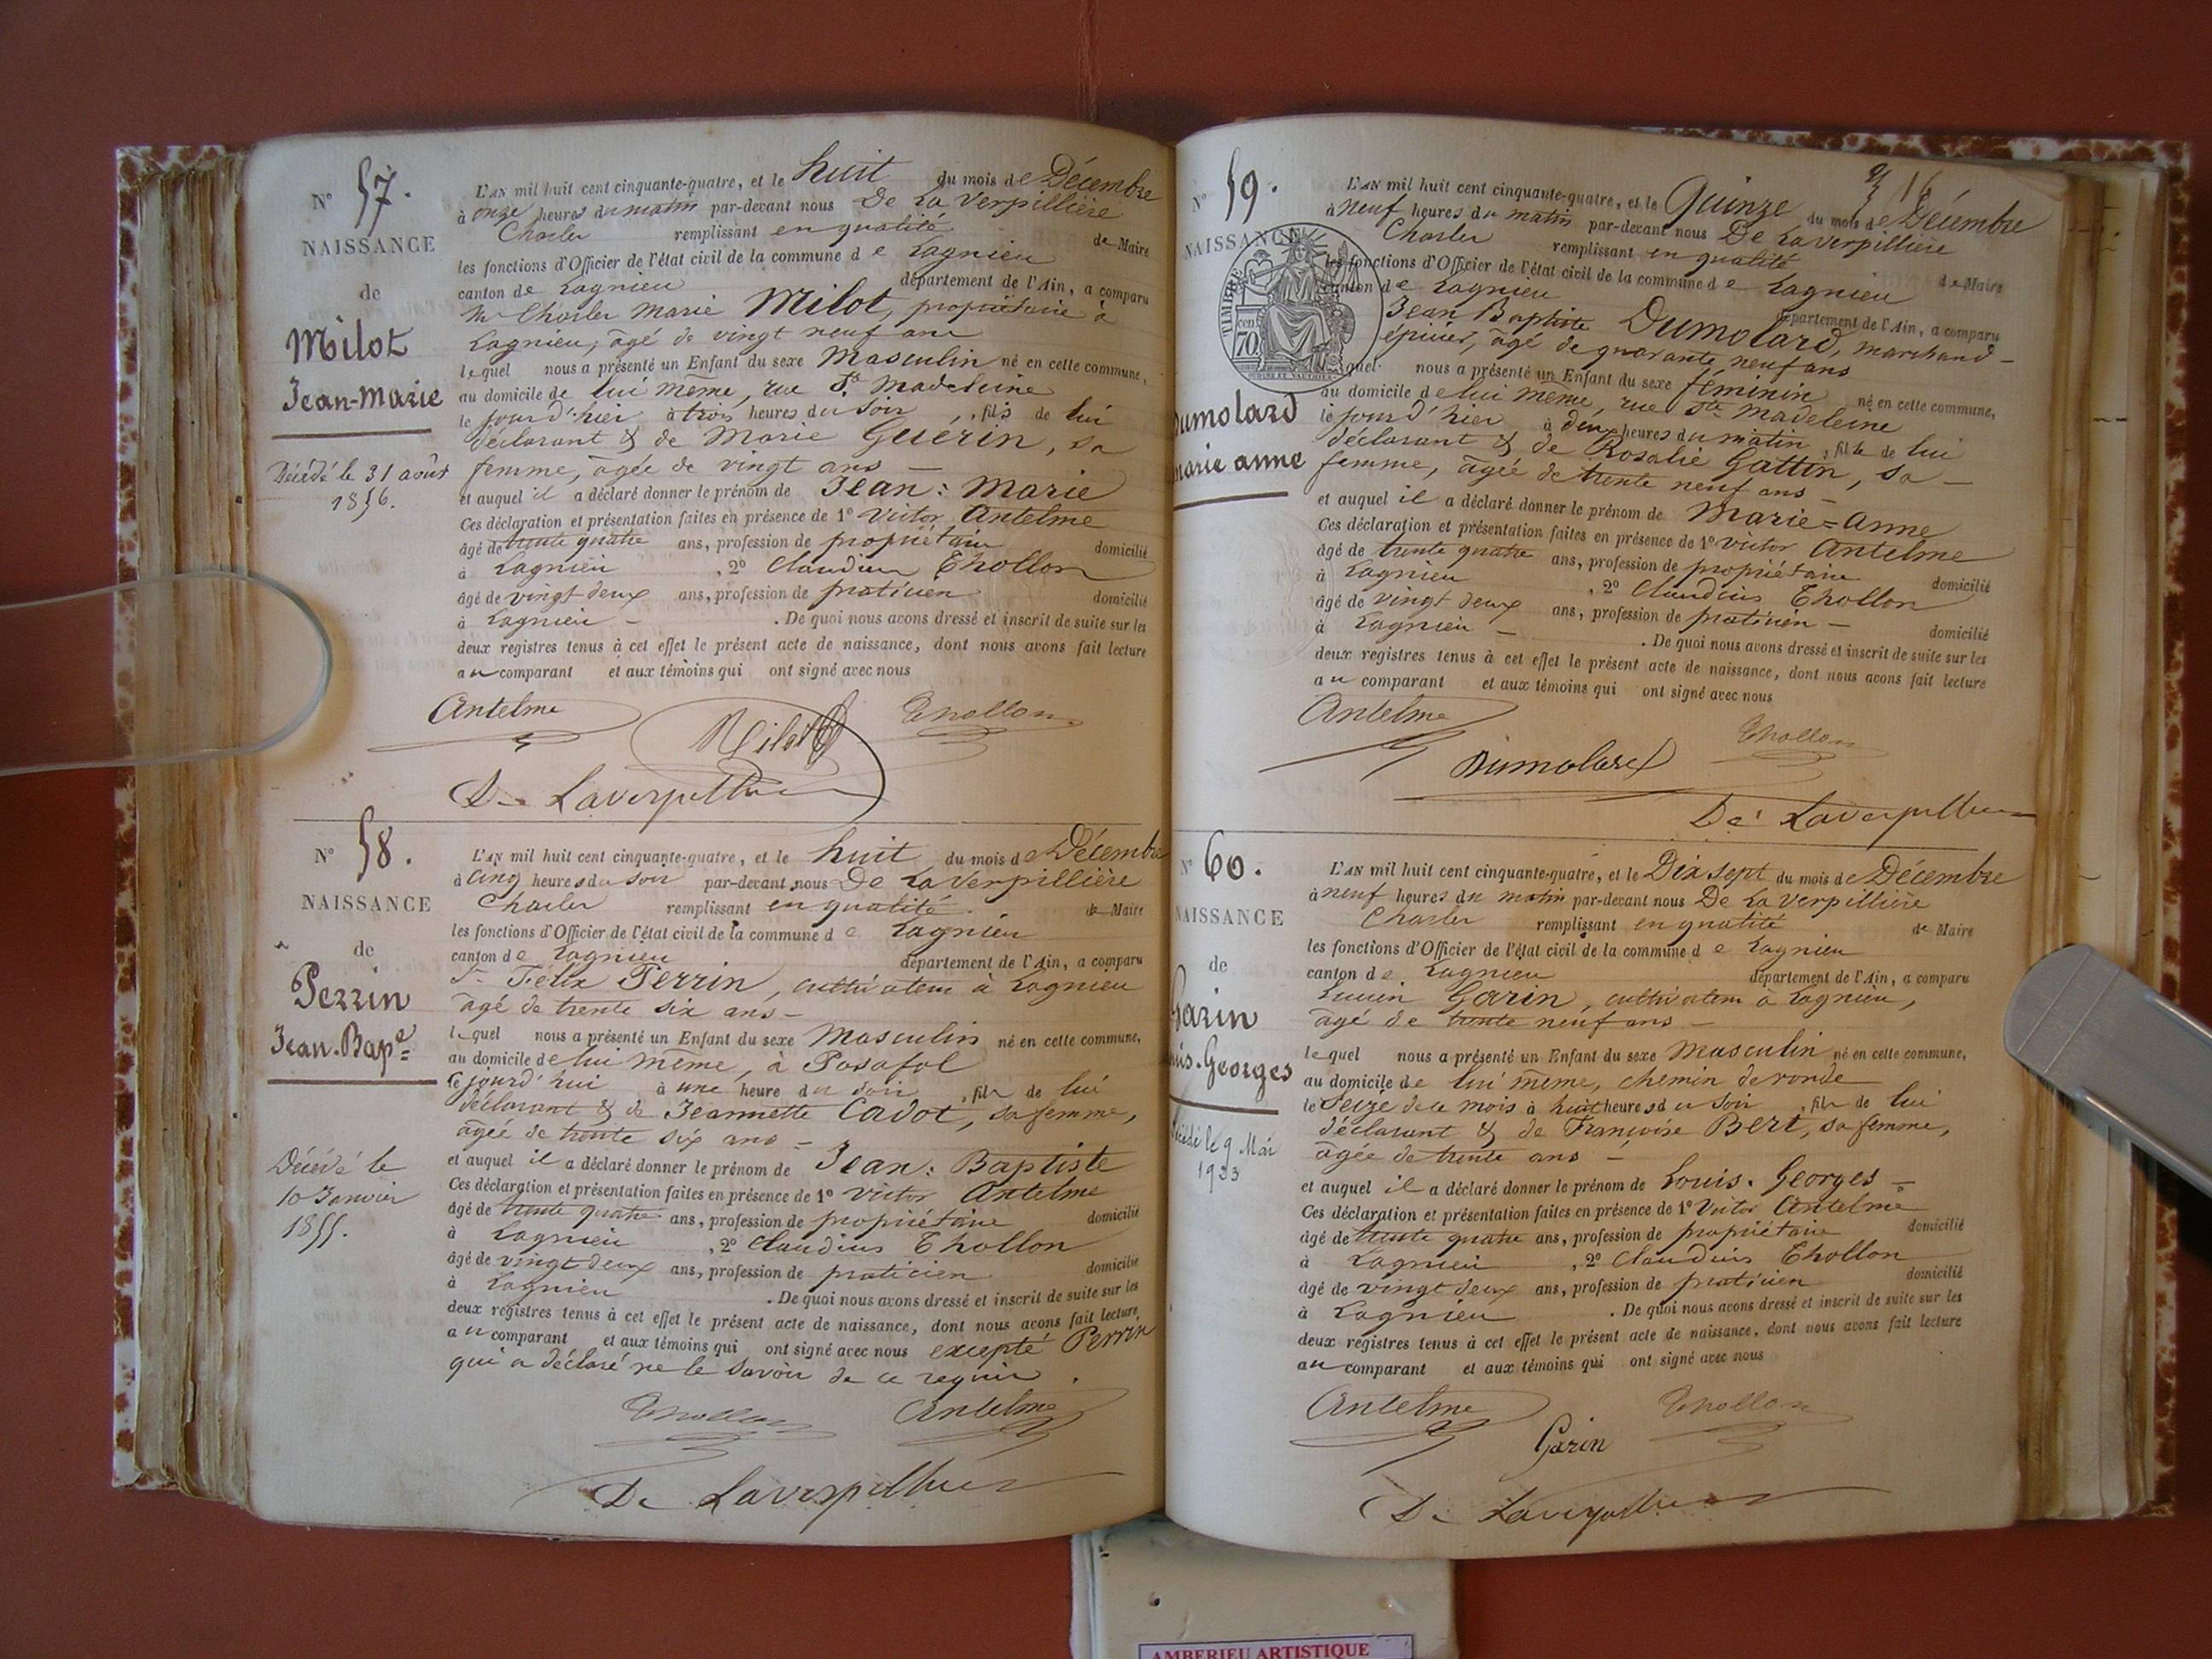 N° 57.
NAISSANCE
de
Milot
Jean-Marie
Décédé le 31 août
1856.
L'AN mil huit cent cinquante-quatre, et le huit du mois de Décembre
à onze heures du matin par-devant nous De La Verpillière
Charles remplissant en qualité de Maire
les fonctions d'Officier de l'état civil de la commune de Lagnieu
canton de Lagnieu département de l'Ain, a comparu
Mr Charles Marie Milot, propriétaire à
Lagnieu, âgé de vingt neuf ans
lequel nous a présenté un Enfant du sexe Masculin né en cette commune,
au domicile de lui même, rue Ste Madeleine
le jour d'hier à trois heures du soir, fils de lui
déclarant & de Marie Guérin, sa
femme, âgée de vingt ans —
et auquel il a déclaré donner le prénom de Jean: Marie
Ces déclaration et présentation faites en présence de 1° Victor Antelme
âgé de trente quatre ans, profession de propriétaire domicilié
à Lagnieu, 2° Claudius Thollon
âgé de vingt deux ans, profession de praticien domicilié
à Lagnieu — . De quoi nous avons dressé et inscrit de suite sur les
deux registres tenus à cet effet le présent acte de naissance, dont nous avons fait lecture
au comparant et aux témoins qui ont signé avec nous
Antelme Milot Thollon
De Laverpillière
N° 58.
NAISSANCE
de
Perrin
Jean-Bapte
Décédé le
10 Janvier
1855.
L'AN mil huit cent cinquante-quatre, et le huit du mois de Décembre
à cinq heures du soir par-devant nous De La Verpillière
Charles remplissant en qualité de Maire
les fonctions d'Officier de l'état civil de la commune de Lagnieu
canton de Lagnieu département de l'Ain, a comparu
Sr Félix Perrin, cultivateur à Lagnieu
âgé de trente six ans —
lequel nous a présenté un Enfant du sexe Masculin né en cette commune,
au domicile de lui même, à Posafol
le jourd'hui à une heure du soir, fils de lui
déclarant & de Jeannette Cadot, sa femme,
âgée de trente six ans —
et auquel il a déclaré donner le prénom de Jean: Baptiste
Ces déclaration et présentation faites en présence de 1° Victor Antelme
âgé de trente quatre ans, profession de propriétaire domicilié
à Lagnieu, 2° Claudius Thollon
âgé de vingt deux ans, profession de praticien domicilié
à Lagnieu . De quoi nous avons dressé et inscrit de suite sur les
deux registres tenus à cet effet le présent acte de naissance, dont nous avons fait lecture
au comparant et aux témoins qui ont signé avec nous excepté Perrin
qui a déclaré ne le savoir de ce requis.
Thollon Antelme
De Laverpillière
16
N° 59.
NAISSANCE
TIMBRE
cen. 70.
Dumolard
marie anne
L'AN mil huit cent cinquante-quatre, et le Quinze du mois de Décembre
à neuf heures du matin par-devant nous De La Verpillière
Charles remplissant en qualité de Maire
les fonctions d'Officier de l'état civil de la commune de Lagnieu
canton de Lagnieu département de l'Ain, a comparu
Jean Baptiste Dumolard, marchand —
épicier, âgé de quarante neuf ans
quel nous a présenté un Enfant du sexe féminin né en cette commune,
au domicile de lui même, rue Ste Madeleine
le jour d'hier, à deux heures du matin, fille de lui
déclarant & de Rosalie Gattin, sa —
femme, âgée de trente neuf ans —
et auquel il a déclaré donner le prénom de Marie=Anne
Ces déclaration et présentation faites en présence de 1° Victor Antelme
âgé de trente quatre ans, profession de propriétaire domicilié
à Lagnieu, 2° Claudius Thollon
âgé de vingt deux ans, profession de praticien — domicilié
à Lagnieu — . De quoi nous avons dressé et inscrit de suite sur les
deux registres tenus à cet effet le présent acte de naissance, dont nous avons fait lecture
au comparant et aux témoins qui ont signé avec nous
Antelme Dumolard Thollon
De Laverpillière
N° 60.
NAISSANCE
de
Garin
uis-Georges
Décédé le 9 Mai
1933
L'AN mil huit cent cinquante-quatre, et le Dix sept du mois de Décembre
à neuf heures du matin par-devant nous De La Verpillière
Charles remplissant en qualité de Maire
les fonctions d'Officier de l'état civil de la commune de Lagnieu
canton de Lagnieu département de l'Ain, a comparu
Lucien Garin, cultivateur à Lagnieu,
âgé de trente neuf ans —
lequel nous a présenté un Enfant du sexe Masculin né en cette commune,
au domicile de lui même, chemin de ronde
le Seize de ce mois à huit heures du soir, fils de lui
déclarant & de Françoise Bert, sa femme,
âgée de trente ans —
et auquel il a déclaré donner le prénom de Louis. Georges —
Ces déclaration et présentation faites en présence de 1° Victor Antelme
âgé de trente quatre ans, profession de propriétaire domicilié
à Lagnieu, 2° Claudius Thollon
âgé de vingt deux ans, profession de praticien domicilié
à Lagnieu . De quoi nous avons dressé et inscrit de suite sur les
deux registres tenus à cet effet le présent acte de naissance, dont nous avons fait lecture
au comparant et aux témoins qui ont signé avec nous
Antelme Garin Thollon
De Laverpillière
AMBERIEU ARTISTIQUE